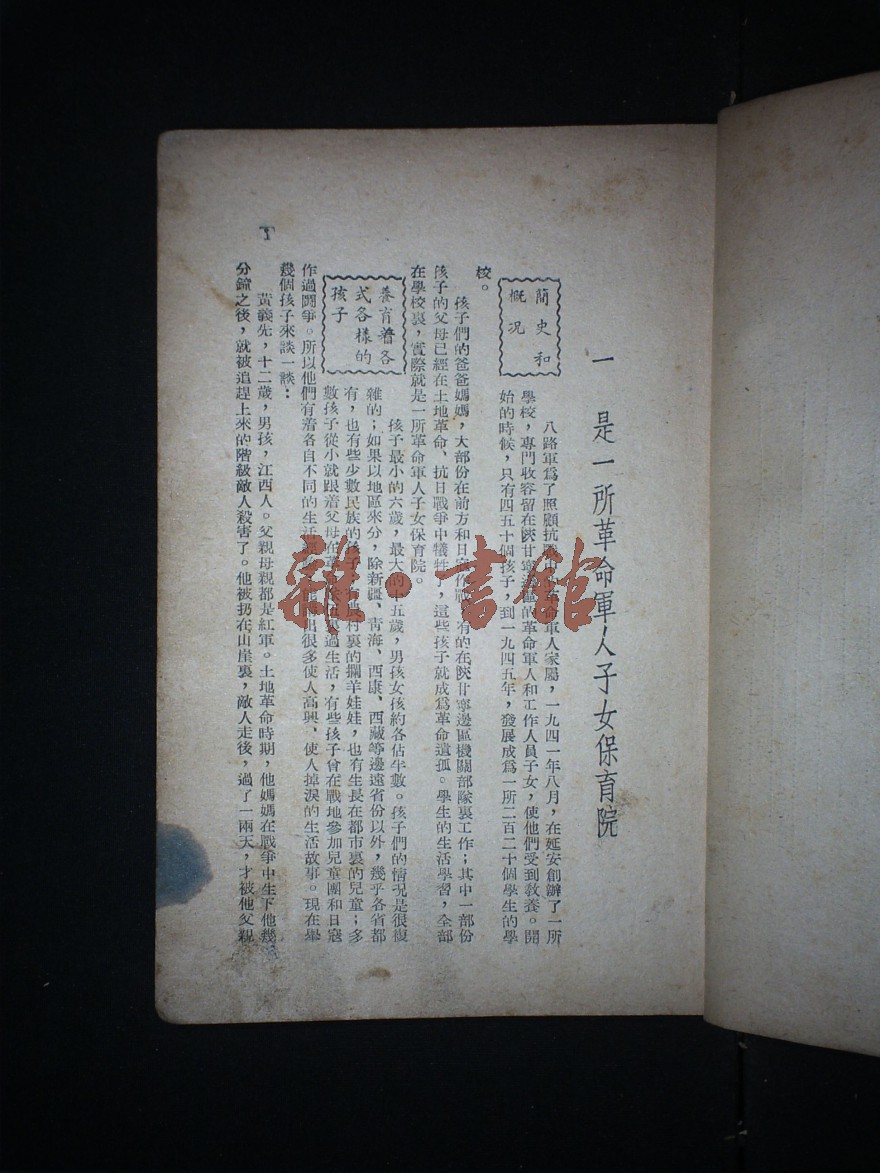 一 是一所革命軍人子女保育院
簡史和
概况
八路軍爲了照顧抗
革命軍人家屬,一九四一年八月,在延安創辦了一所
學校,專門收容留在陝甘寧邊區的革命軍人和工作人員子女,使他們受到教養。開
始的時候,只有四五十個孩子,到一九四五年,發展成爲一所二百二十個學生的學
校。
孩子們的爸爸媽媽,大部份在前方和日寇作戰,有的在陝甘寧邊區機關部隊裏工作;其中一部份
孩子的父母已經在土地革命、抗日戰爭中犧牲,這些孩子就成爲革命遺孤。學生的生活學習,全部
在學校裏,實際就是一所革命軍人子女保育院。
養育着各
式各樣的
孩子
孩子最小的六歲,最大的十五歲,男孩女孩約各佔半數。孩子們的情况是很複
雜的;如果以地區來分,除新疆、青海、西康、西藏等邊遠省份以外,幾乎各省都
有,也有些少數民族的孩子
農村裏的攔羊娃娃,也有生長在都市裏的兒童;多
數孩子從小就跟着父母在革
過生活,有些孩子曾在戰地參加兒童團和日寇
作過鬬爭。所以他們有着各自不同的生活
出很多使人高興、使人掉淚的生活故事。現在舉
幾個孩子來談一談:
黃義先,十二歲,男孩,江西人。父親母親都是紅軍。土地革命時期,他媽媽在戰爭中生下他幾
分鐘之後,就被追趕上來的階級敵人殺害了。他被扔在山崖裏,敵人走後,過了一兩天,才被他父親
1
雜·書館